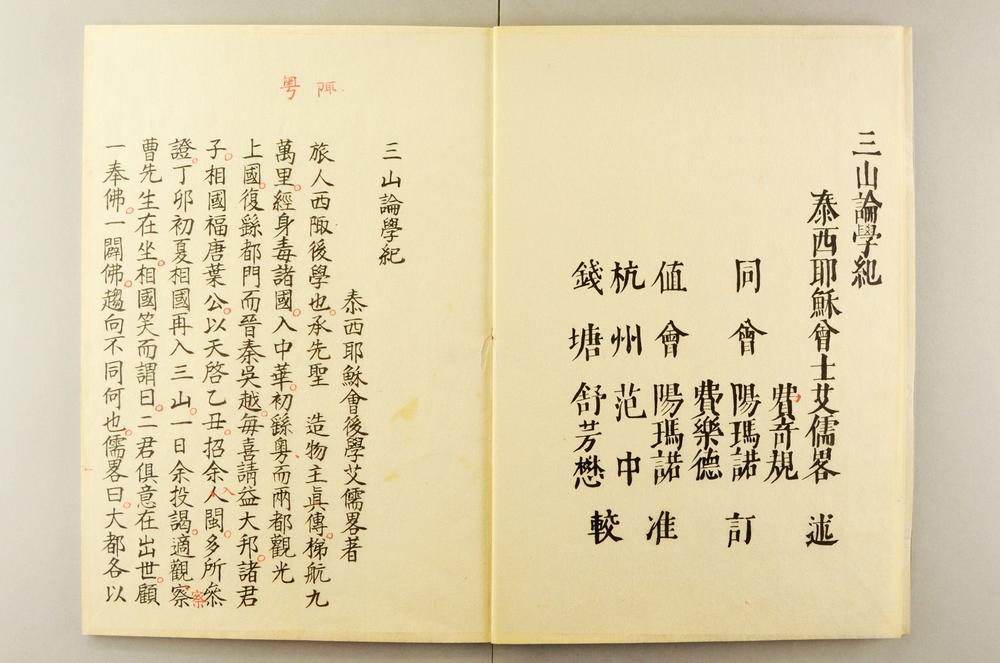 三山論學紀
泰西耶穌會士艾儒畧 述
費奇規
同會 陽瑪諾 訂
費樂德
值會 陽瑪諾 准
杭州 范中
錢塘 舒芳懋 較
陬 粤
三山論學紀
泰西耶穌會後學艾儒畧著
旅人西陬後學也承先聖 造物主眞傳梯航九
萬里經身毒諸國入中華初繇粤而兩都觀光
上國復繇都門而晉秦吳越每喜請益大邦諸君
子相國福唐葉公以天啓乙丑招余入閩多所叅
證丁卯初夏相國再入三山一日余投謁適觀察
曹先生在坐相國笑而謂曰二君俱意在出世顧
一奉佛一闢佛趨向不同何也儒畧曰大都各以
入
察